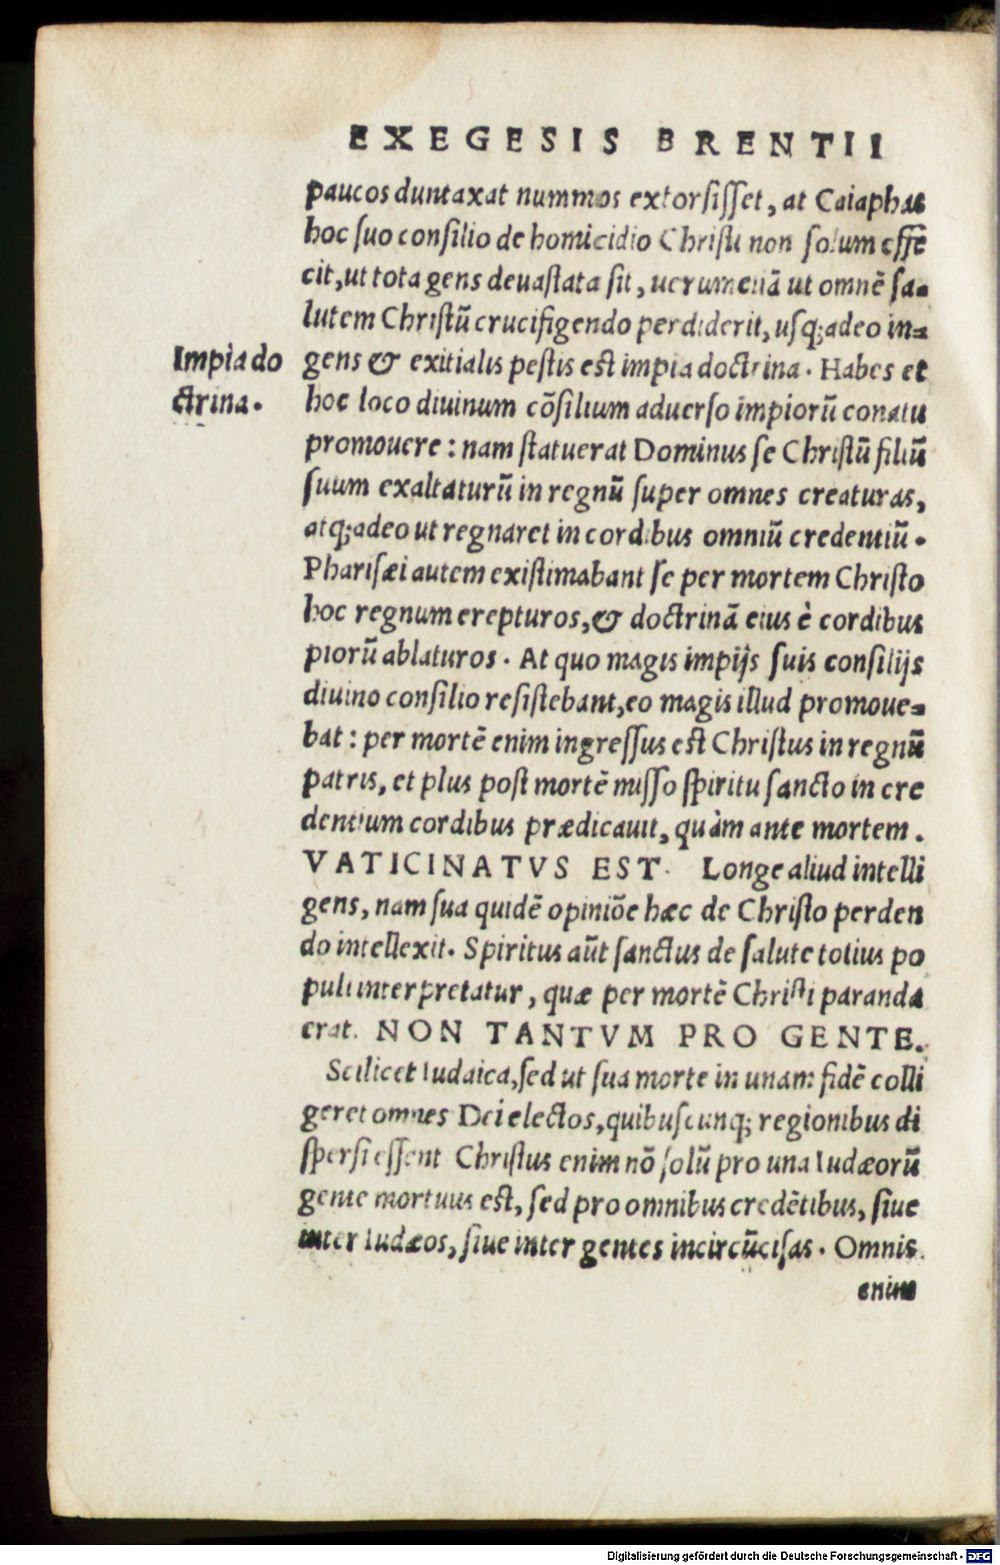 EXEGESIS BRENTII
paucos duntaxat nummos extorsisset, at Caiaphas
hoc suo consilio de homicidio Christi non solum effē
cit, ut tota gens deuastata sit, uerumetiā ut omnē sa-
lutem Christū crucifigendo perdiderit, usq; adeo in-
Impia do
ctrina.
gens & exitialis pestis est impia doctrina. Habes et
hoc loco diuinum cōsilium aduerso impiorū conatu
promouere: nam statuerat Dominus se Christū filiū
suum exaltaturū in regnū super omnes creaturas,
atq; adeo ut regnaret in cordibus omniū credentiū.
Pharisæi autem existimabant se per mortem Christo
hoc regnum erepturos, & doctrinā eius è cordibus
piorū ablaturos. At quo magis impijs suis consilijs
diuino consilio resistebant, eo magis illud promoue-
bat: per mortē enim ingressus est Christus in regnū
patris, et plus post mortē misso spiritu sancto in cre
dentium cordibus prædicauit, quàm ante mortem.
VATICINATVS EST. Longe aliud intelli
gens, nam sua quidē opiniōe hæc de Christo perden
do intellexit. Spiritus aūt sanctus de salute totius po
puli interpretatur, quæ per mortē Christi paranda
erat. NON TANTVM PRO GENTE.
Scilicet Iudaica, sed ut sua morte in unam fidē colli
geret omnes Dei electos, quibuscunq; regionibus di
spersi essent Christus enim nō solū pro una Iudæorū
gente mortuus est, sed pro omnibus credētibus, siue
inter Iudæos, siue inter gentes incircūcisas. Omnis
enim
Digitalisierung gefördert durch die Deutsche Forschungsgemeinschaft - DFG